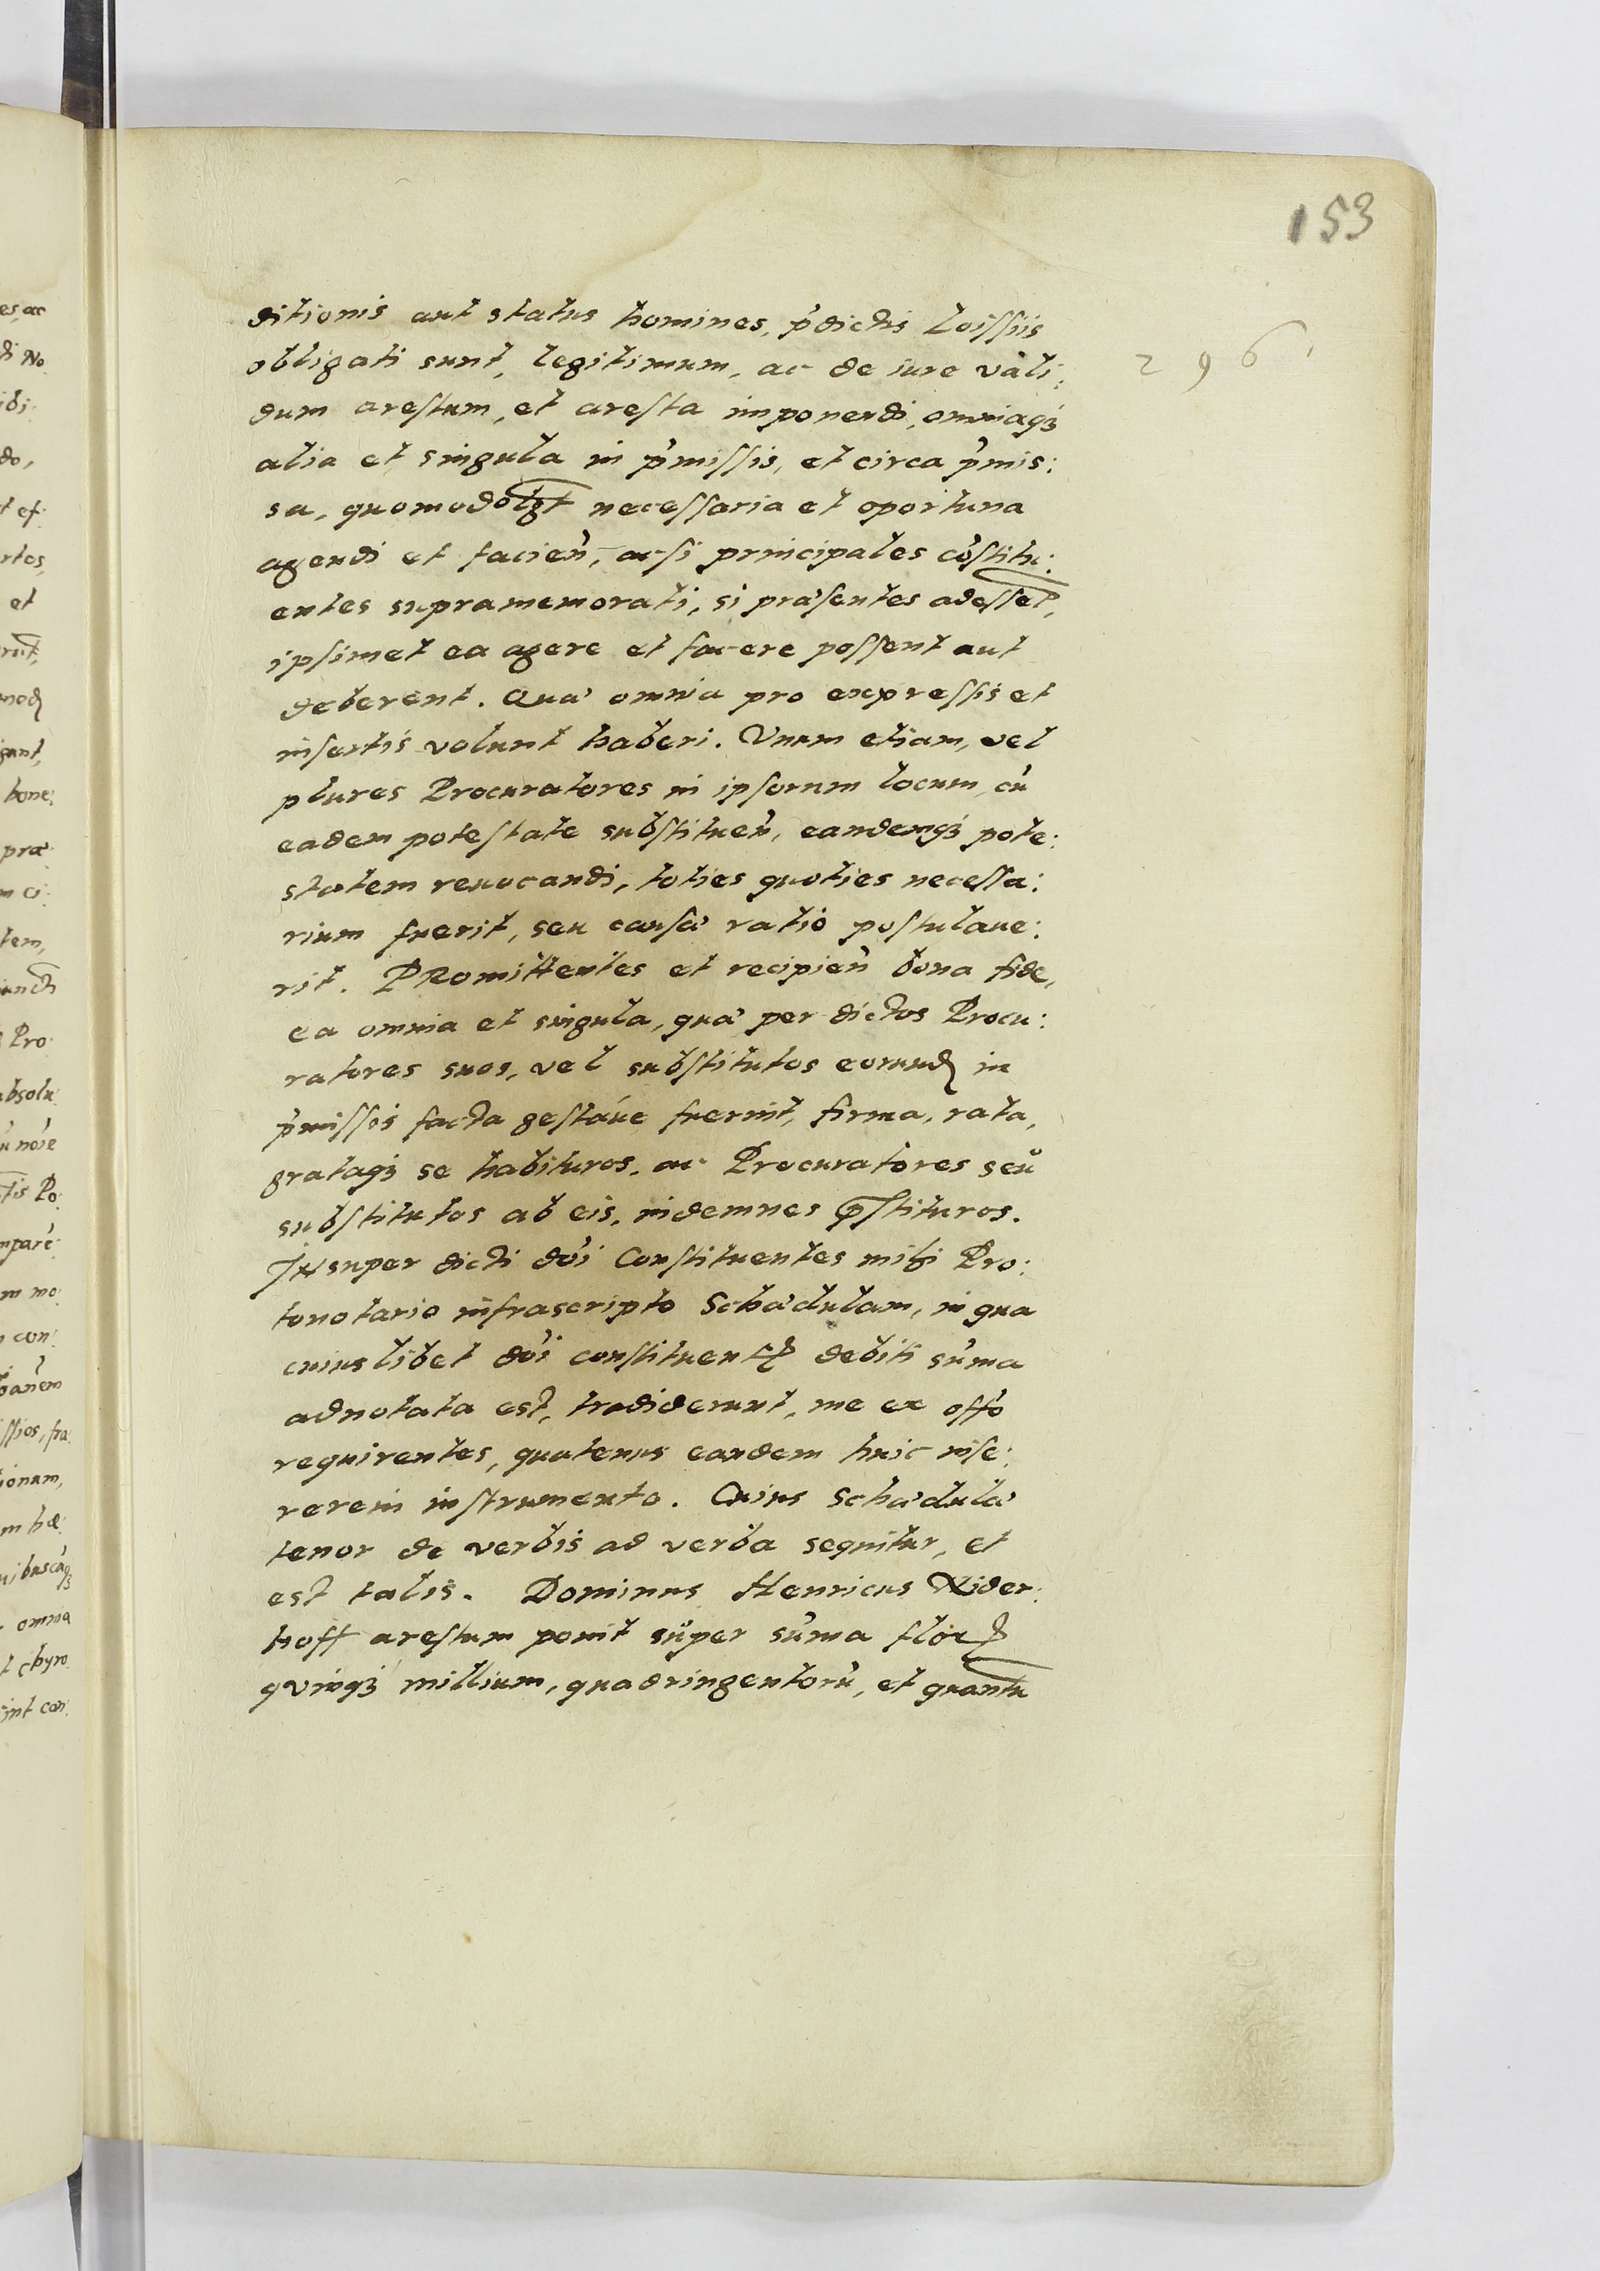 153
296
ditionis aut status homines, p̃dictis Loissiis
obligati sunt, legitimum, ac de iure vali:
dum arestum, et aresta imponendi, omniaqz
alia et singula in p̃missis, et circa p̃mis:
sa, quomodolz̃t necessaria et oportuna
agendi et facień, acsi principales cõstitu:
entes supramemorati, si præsentes adesset̃,
ipsimet ea agere et facere possent aut
deberent. Quæ omnia pro expressis et
insertis volunt haberi. Vnum etiam, vel
plures Procuratores in ipsorum locum, cũ
eadem potestate substitueń, eandemqz pote:
statem reuocandi, toties quoties necessa:
rium fuerit, seu causæ ratio postulaue:
rit. PRomittentes et recipień bona fide,
ea omnia et singula, quæ per dictos Procu:
ratores suos, vel substitutos eorund in
p̃missis facta gestáue fuerint, firma, rata,
grataqz se habituros, ac Procuratores seu
substitutos ab eis, indemnes p̃stituros.
INsuper dicti dñi Constituentes mihi Pro:
tonotario infrascripto Schædulam, in qua
cuiuslibet dñi constituent debiti sum̃a
adnotata est, tradiderunt, me ex offõ
requirentes, quatenus eandem huic inse:
rerem instrumento. Cuius Schædulæ
tenor de verbis ad verba sequitur, et
est talis. Dominus Henricus Nider:
hoff arestum ponit super sum̃a flor
quinqz millium, quadringentorũ, et quantũ